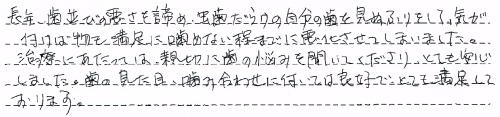 長年、歯並びの悪さを諦め、虫歯だらけの自分の歯を見ぬふりをして、気が
付けば物も満足に噛めない程までに悪化させてしまいました。
治療にあたっては、親切に歯の悩みを聞いてくださり、とても安心
しました。歯の見た目、噛み合わせに付いては良好で、とても満足して
おります。